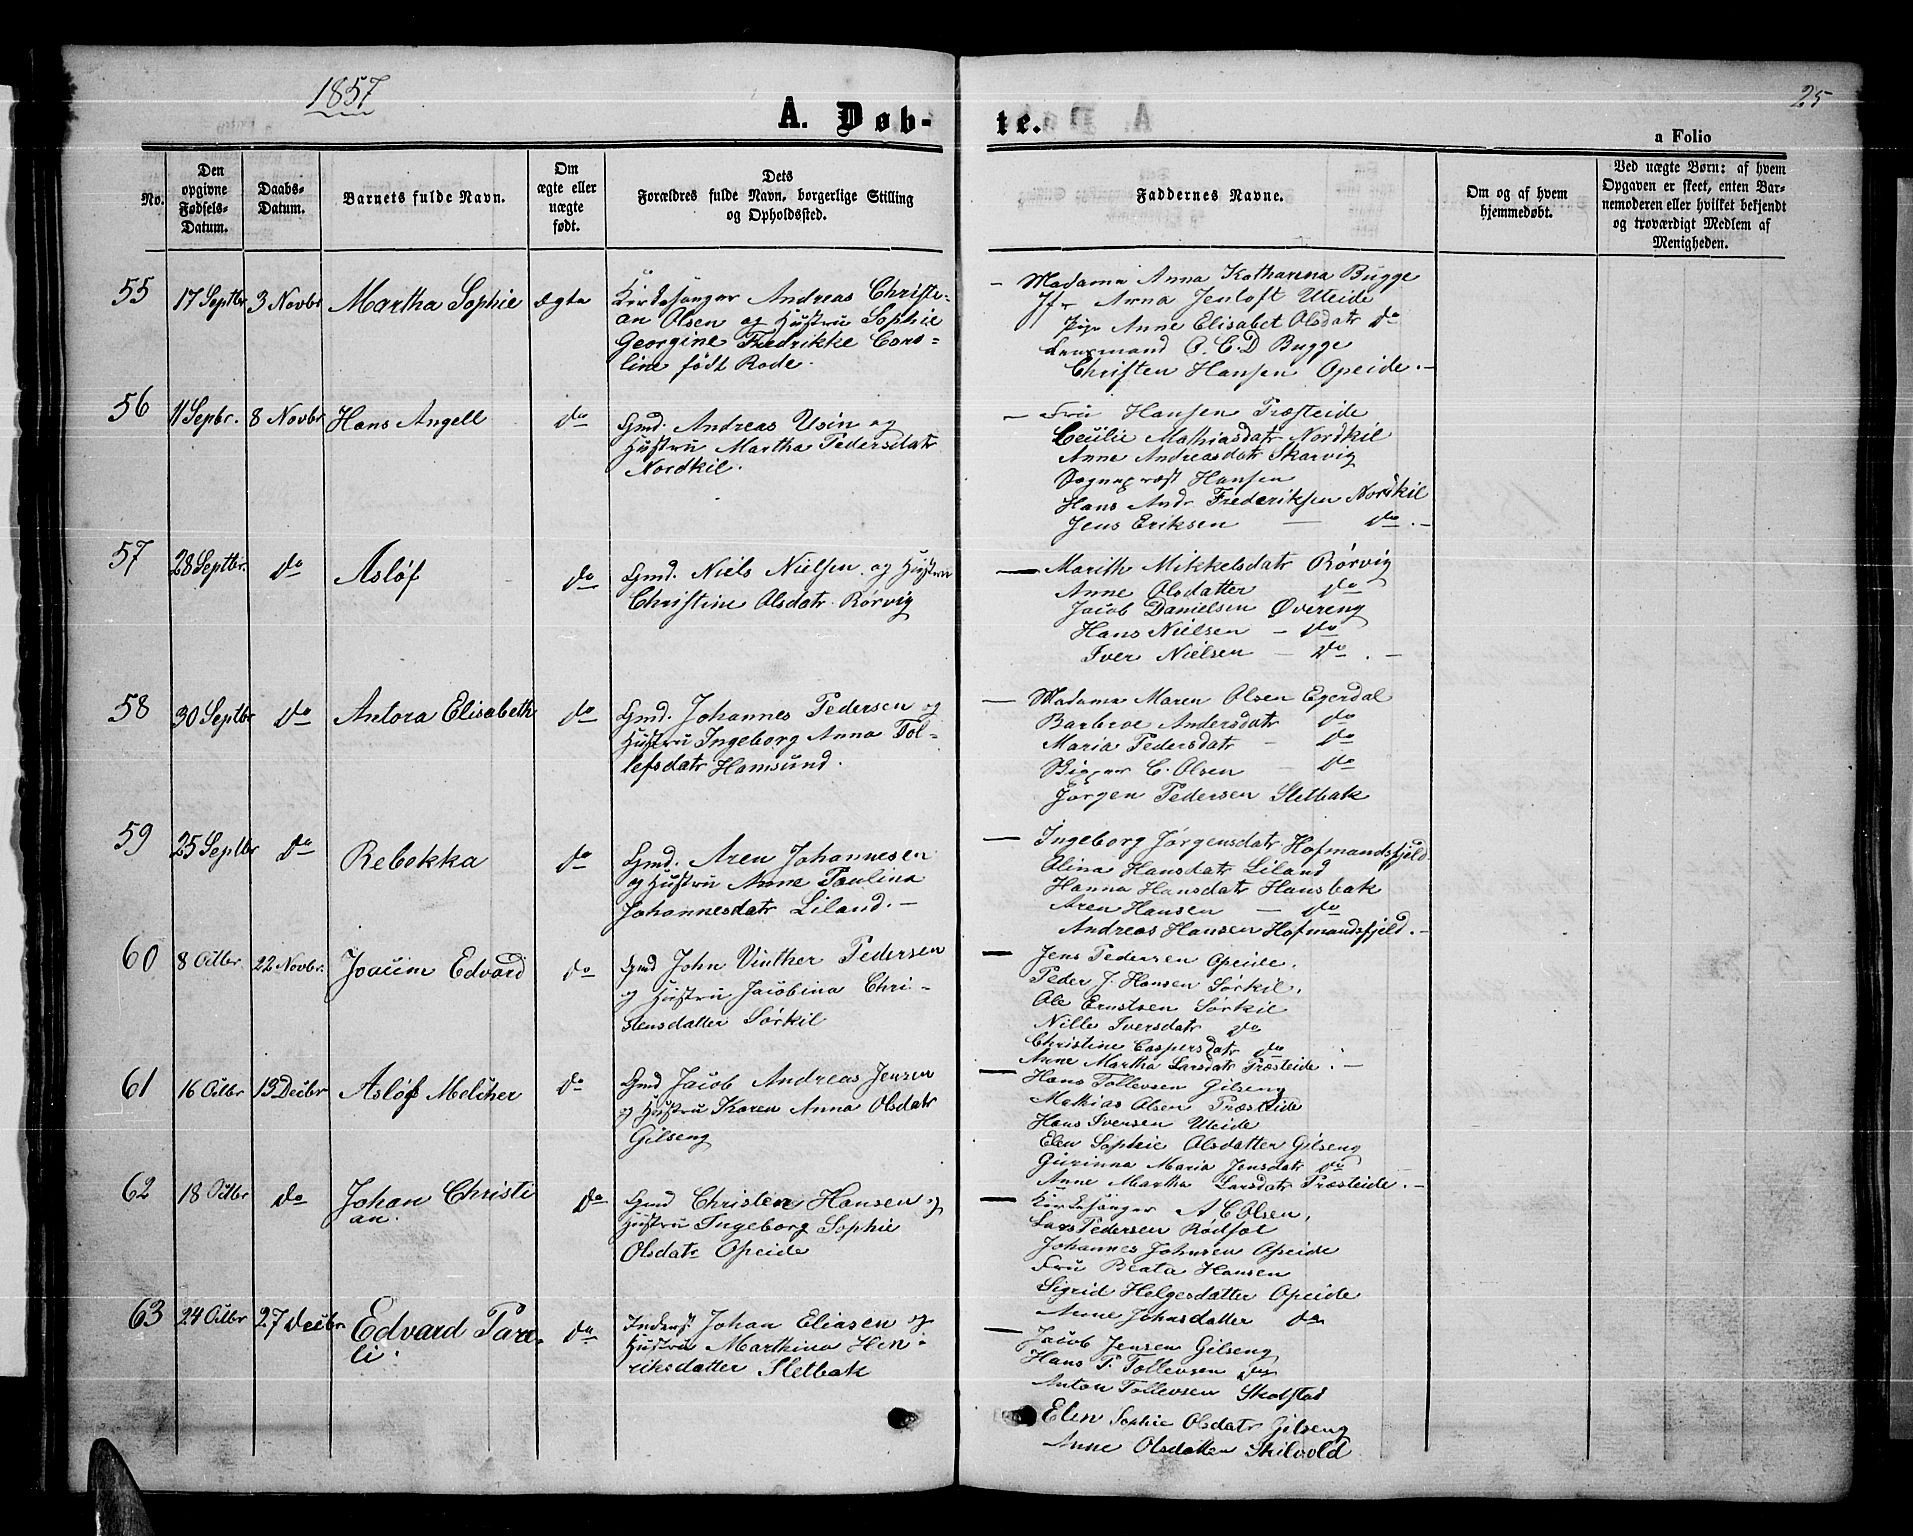 1857
25
A. Døb-
te.
a Folio
No.
Den opgivne Fødsels-Datum.
Daabs-Datum.
Barnets fulde Navn.
Om ægte eller uægte født.
Dets
Forældres fulde Navn, borgerlige Stilling
og Opholdssted.
Faddernes Navne.
Om og af hvem
hjemmedøbt.
Ved uægte Børn: af hvem
Opgaven er skeet, enten Bar-
nemoderen eller hvilket bekjendt
og troværdigt Medlem af
Menigheden.
55 17 Septbr 3 Novbr Martha Sophie ægte
Kirkesanger Andreas Christi-
an Olsen og Hustru Sophie
Georgine Fredrikke Caro-
line født Rode.
- Madame Anna Katharina Bugge
Jfr Anna Jenloft Uteide
Pige Anne Elisabet Olsdatr do
Lensmand O. C. D Bugge
Christen Hansen Opeide. -
56 11 Sepbr. 8 Novbr Hans Angell do
Gmd. Andreas Usin og
Hustru Martha Pedersdatr
Nordkil.
- Fru Hansen Præsteide
Cecilie Mathiasdatr Nordkil
Anne Andreasdatr Skarvig
Sognepræst Hansen
Hans Andr Frederiksen Nordkil
Jens Eriksen - do. -
57 28 Septbr. do Asløf do
Gmd. Niels Nielsen og Hustru
Christine Olsdatr Rørvig
- Marith Mikkelsdatr Rørvig
Anne Olsdatter do
Jacob Danielsen Øvereng
Hans Nielsen - do
Iver Nielsen - do. -
58 30 Septbr do Antora Elisabeth do
Gmd. Johannes Pedersen og
Hustru Ingeborg Anna Tol-
lefsdatr Hamsund.
- Madame Maren Olsen Egerdal
Barbroe Andersdatr do
Maria Pedersdatr - do
C. Olsen - do
Jørgen Pedersen Sletbak
59 25 Septbr do Rebekka do
Gmd. Aren Johannesen
og Hustru Anne Paulina
Johannesdatr Liland. -
- Ingeborg Jørgensdatr Hofmandsfjeld
Olina Hansdatr Liland
Hanna Hansdatr Hansbak
Aren Hansen - do
Andreas Hansen Hofmandsfjeld. -
60 8 Octbr 22 Novbr. Joacim Edvard do
Gmd John Vinther Pedersen
og Hustru Jacobina Chri-
stensdatter Sørkil
- Jens Pedersen Opeide.
Peder J. Hansen Sørkil.
Ole Erntsen Sørkil
Nille Iversdatr do
Christine Caspersdatr do
Anne Martha Larsdatr Præsteide. -
61 16 Octbr 13 Decbr Asløf Melcher do
Gmd Jacob Andreas Jensen
og Hustru Karen Anna Olsdatr
Gilseng
- Hans Tollevsen Gilseng
Mathias Olsen Præsteide
Hans Iversen Uteide
Elen Sophie Olsdatter Gilseng
Gurinna Maria Jensdatr do
Anne Martha Larsdatr Præsteide. -
62 18 Octbr do Johan Christi
an. do
Gmd Christen Hansen og
Hustru Ingeborg Sophie
Olsdatr Opeide
- Kirkesanger A C Olsen.
Lars Pedersen Rødsøl
Johannes Johnsen Opeide
Fru Beata Hansen
Sigrid Helgesdatter Opeide
Anne Johnsdatter do
63 24 Octbr 27 Decbr Edvard Pare-
li. do
Inderst Johan Eliasen og
Hustru Marthina Hen-
riksdatter Sletbak
- Jacob Jensen Gilseng
Hans P. Tollevsen do
Anton Tollevsen Skolstad
Elen Sophie Olsdatr Gilseng
Anne Olsdatter Skilvold